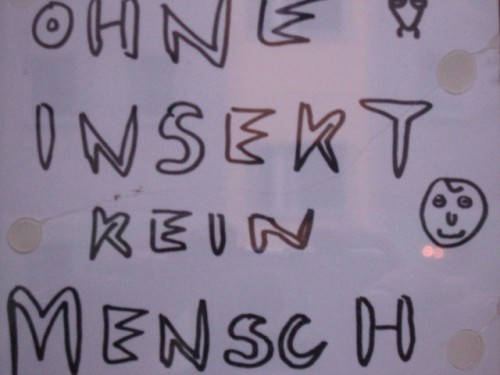 OHNE
INSEKT
KEIN
MENSCH